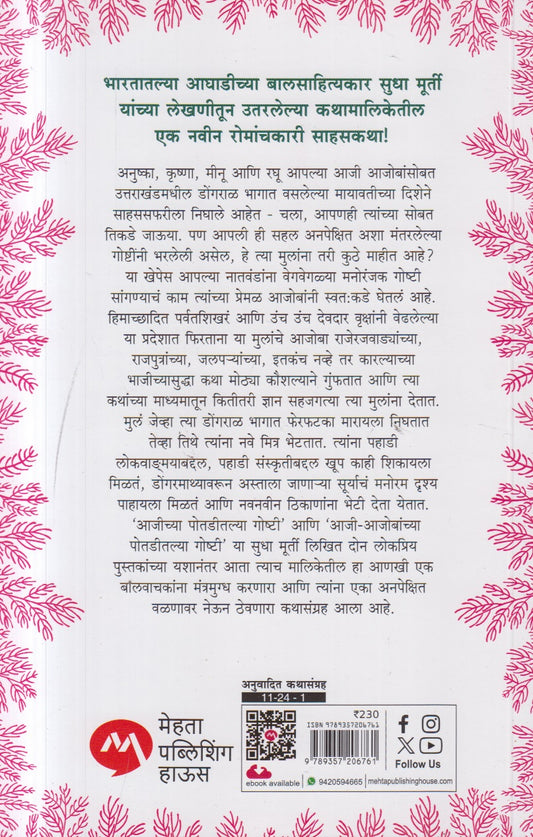 भारतातल्या आघाडीच्या बालसाहित्यकार सुधा मूर्ती
यांच्या लेखणीतून उतरलेल्या कथामालिकेतील
एक नवीन रोमांचकारी साहसकथा!
अनुष्का, कृष्णा, मीनू आणि रघू आपल्या आजी आजोबांसोबत
उत्तराखंडमधील डोंगराळ भागात वसलेल्या मायावतीच्या दिशेने
साहससफरीला निघाले आहेत - चला, आपणही त्यांच्या सोबत
तिकडे जाऊया. पण आपली ही सहल अनपेक्षित अशा मंतरलेल्या
गोष्टींनी भरलेली असेल, हे त्या मुलांना तरी कुठे माहीत आहे?
या खेपेस आपल्या नातवंडांना वेगवेगळ्या मनोरंजक गोष्टी
सांगण्याचं काम त्यांच्या प्रेमळ आजोबांनी स्वत:कडे घेतलं आहे.
हिमाच्छादित पर्वतशिखरं आणि उंच उंच देवदार वृक्षांनी वेढलेल्या
या प्रदेशात फिरताना या मुलांचे आजोबा राजेरजवाड्यांच्या,
राजपुत्रांच्या, जलपऱ्यांच्या, इतकंच नव्हे तर कारल्याच्या
भाजीच्यासुद्धा कथा मोठ्या कौशल्याने गुंफतात आणि त्या
कथांच्या माध्यमातून कितीतरी ज्ञान सहजगत्या त्या मुलांना देतात.
मुलं जेव्हा त्या डोंगराळ भागात फेरफटका मारायला निघतात
तेव्हा तिथे त्यांना नवे मित्र भेटतात. त्यांना पहाडी
लोकवाङ्मयाबद्दल, पहाडी संस्कृतीबद्दल खूप काही शिकायला
मिळतं, डोंगरमाथ्यावरून अस्ताला जाणाऱ्या सूर्याचं मनोरम दृश्य
पाहायला मिळतं आणि नवनवीन ठिकाणांना भेटी देता येतात.
'आजीच्या पोतडीतल्या गोष्टी' आणि 'आजी-आजोबांच्या
पोतडीतल्या गोष्टी' या सुधा मूर्ती लिखित दोन लोकप्रिय
पुस्तकांच्या यशानंतर आता त्याच मालिकेतील हा आणखी एक
बालवाचकांना मंत्रमुग्ध करणारा आणि त्यांना एका अनपेक्षित
वळणावर नेऊन ठेवणारा कथासंग्रह आला आहे.
अनुवादित कथासंग्रह
11-24 - 1
मेहता
पब्लिशिंग
हाऊस
ebook available
₹230
ISBN 9789357206761
9 789357 206761
9420594665
Follow Us
mehtapublishinghouse.com